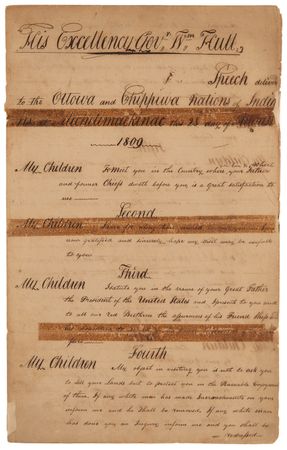 His Excellency Gov.r Wm Hull
Speech deliver
to the Ottowa and Chippiwa Nations of Indi
1809
My Children To meet you in the Country where your Fathers
and former Chiefs dwelt before you is a Great satisfaction to
me
Second
My Children
now gratified and sincerely hope my visit may be
to you
Third
My Children I salute you in the name of your Great Father
the President of the United States and present to you and
to all our red Brethren the assurances of his Friend Ship
Fourth
My Children My object in visiting you is not to ask you
to sell your Lands but to protect you in the Peaceable Enjoyment
of them If any white man has made Incroachments on your
inform me and he Shall be removed If any white man
has done you an Injury inform me and you shall be
redressed